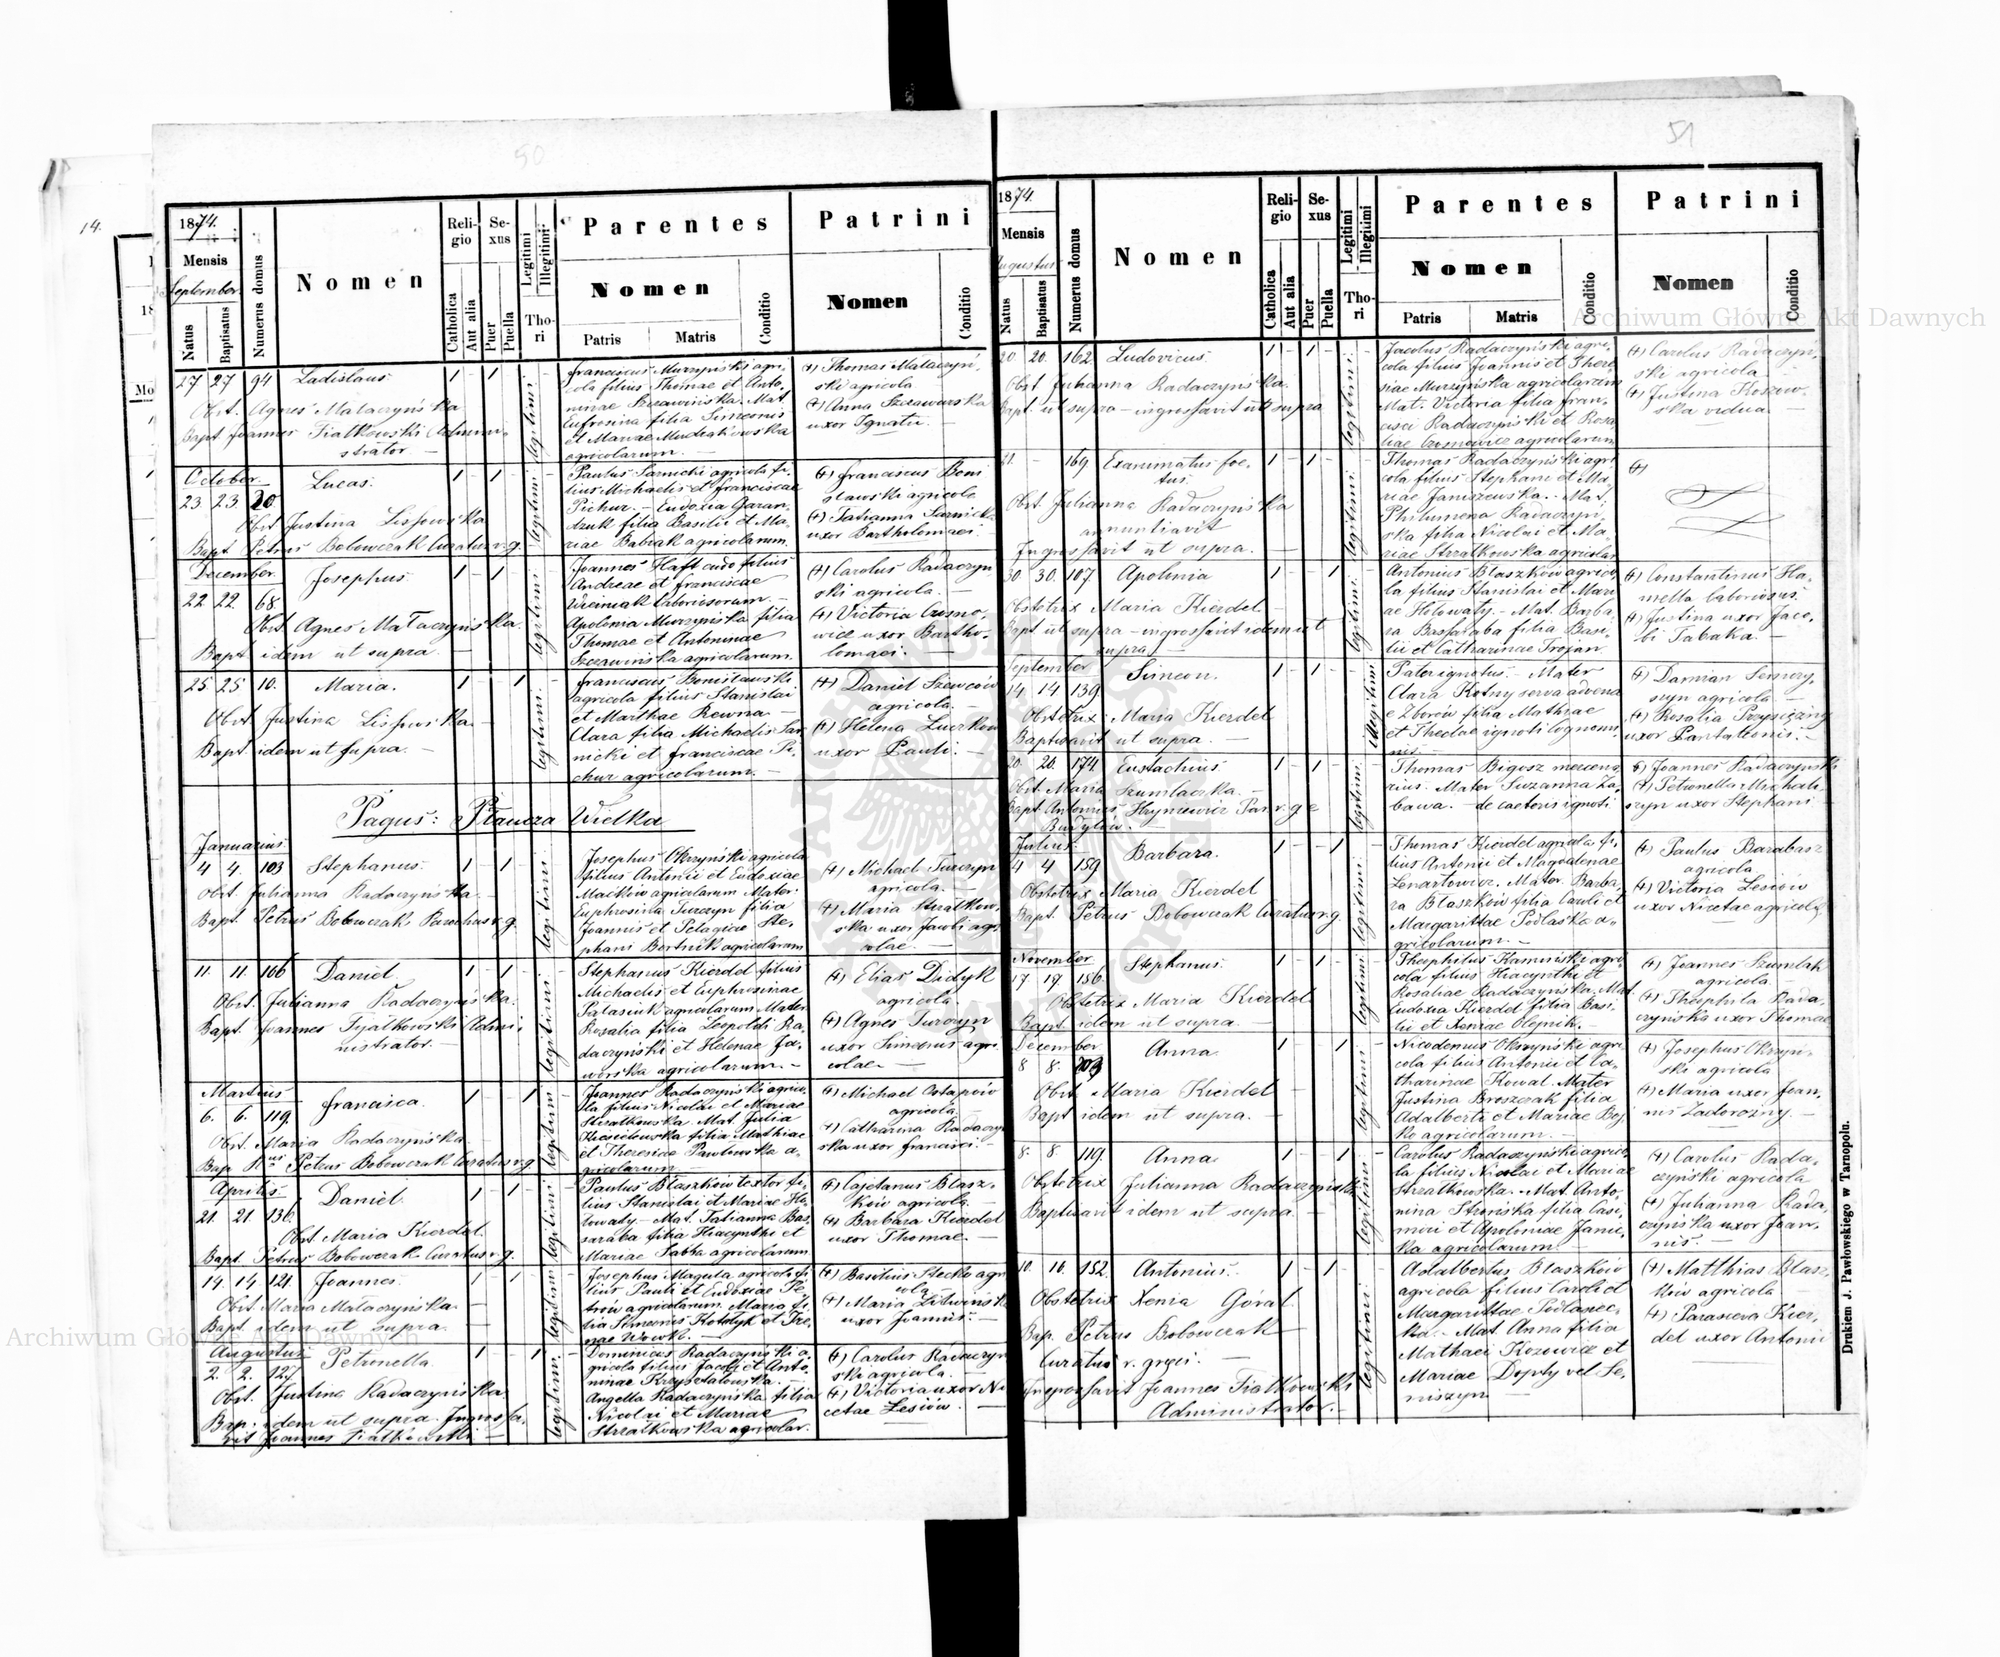 50
14.
1874.
Mensis
September
Natus
Baptisatus
Numerus domus
Nomen
Religio
Catholica
Aut alia
Sexus
Puer
Puella
Legitimi
Illegitimi
Thori
Parentes
Nomen
Patris
Matris
Conditio
Patrini
Nomen
Conditio
27 27 94 Ladislaus 1 - 1 -
Obst. Agnes Mataczyńska
Bapt Joannes Fiałkowski Admini-
strator.
legitimi
Franciscus Murzyński agri-
cola filius Thomae et Anto-
ninae Szczawińska. Mat
Eufrosina filia Simeonis
et Mariae
agricolarum. —
(+) Thomas Mataczyń-
ski agricola
(+) Anna
uxor Ignatii. —
October
23. 23. 20 Lucas. 1 - 1 -
Obst Justina Lissowska
Bapt. Petrus Bobowczak Curatus r. g.
legitimi
Paulus Sarnicki agricola fi-
lius Michaelis et Franciscae
Pichur. — Eudoxia Garan-
dzuk filia Basilii et Ma-
riae Babiak agricolarum.
(+) Franciscus Boni
sławski agricola
(+) Tatianna Sarnicka
uxor Bartholomaei.
December
22. 22. 68. Josephus 1 - 1 -
Obst Agnes Mataczyńska
Bapt idem ut supra. —
legitimi
Joannes Haft cudo filius
Andreae et Franciscae
Wiciniak laboriosorum. —
Apolonia Murzyńska filia
Thomae et Antoninae
Szczawińska agricolarum.
(+) Carolus Radaczyń-
ski agricola. —
(+) Victoria Czesno-
wicz uxor Bartho-
lomaei. —
25. 25 10. Maria. 1 - - 1
Obst Justina Lissowska
Bapt. idem ut supra. —
legitimi
Franciscus Bonisławski
agricola filius Stanislai
et Marthae Rewna. —
Clara filia Michaelis Sar-
nicki et Franciscae Pi-
chur agricolarum. —
(+) Daniel Szewców
agricola. —
(+) Helena Luczków
uxor Pauli. —
Pagus: Płaucza Wielka
Januarius
4 4. 103 Stephanus. 1 - 1 -
Obst Julianna Radaczyńska.
Bapt. Petrus Bobowczak Parochus r. g.
legitimi
Josephus Okrzyński agricola
filius Antonii et Eudoxiae
Maćków agricolarum Mater
Euphrosina Turczyn filia
Joannis et Pelagiae Ste-
phani Bortnik agricolarum
(+) Michael Turczyn
agricola. —
(+) Maria Strzałkow-
ska uxor Jacobi agri
colae. —
11. 11. 166 Daniel 1 - 1 -
Obst. Julianna Radaczyńska.
Bapt. Joannes Fijałkowski Admi-
nistrator. —
legitimi
Stephanus Kierdel filius
Michaelis et Euphrosinae
Tatasiuk agricolarum. Mater
Rosalia filia Leopoldi Ra-
daczyński et Helenae Ja-
worska agricolarum. —
(+) Elias Didyk
agricola.
(+) Agnes Turczyn
uxor Simonis agri-
colae. —
Martius
6. 6. 119. Francisca. 1 - - 1
Obst. Maria Radaczyńska
Bap Petrus Bobowczak Curatus r. g.
legitimi
Joannes Radaczyński agrico-
la filius Nicolai et Mariae
Strzałkowska. Mat. Julia
filia Mathiae
et Theresiae Pawlińska a-
gricolarum —
(+) Michael Ostapów
agricola
(+) Catharina Radaczyń
ska uxor Francisci. —
Aprilis
21. 21. 136. Daniel. 1 - 1 -
Obst Maria Kierdel
Bapt. Petrus Bobowczak Curatus r. g.
legitimi
Paulus Błaszków textor fi-
lius Stanislai et Mariae Ho-
łowaty — Mat. Tatianna Bas-
saraba filia Hiacynthi et
Mariae Sabka agricolarum
(+) Cajetanus Błasz-
ków agricola. —
(+) Barbara Kierdel
uxor Thomae. —
14. 14. 121. Joannes. 1 - 1 -
Obst Maria Mataczyńska. —
Bapt. idem ut supra. —
legitimi
Josephus Maguta agricola fi-
lius Pauli et Eudoxiae Pe-
trów agricolarum. Maria fi-
lia Simeonis Kotołyk et Ire-
nae Wowk. —
(+) Basilius Stecko agri
cola —
(+) Maria Litwińska
uxor Joannis. —
Augustus
2. 2. 127. Petronella. 1 - - 1
Obst. Justina Radaczyńska
Bap. idem ut supra Ingrossa-
vit Joannes Fiałkowski —
legitimi
Dominicus Radaczyński a-
gricola filius Jacobi et Anto-
ninae Krzyształowska. —
Angella Radaczyńska filia
Nicolai et Mariae
Strzałkowska agricolar.
(+) Carolus Radaczyń
ski agricola. —
(+) Victoria uxor Ni
cetae Lesiów. —
51
1874.
Mensis
Augustus
Natus
Baptisatus
Numerus domus
Nomen
Religio
Catholica
Aut alia
Sexus
Puer
Puella
Legitimi
Illegitimi
Thori
Parentes
Nomen
Patris
Matris
Conditio
Patrini
Nomen
Conditio
20. 20. 162. Ludovicus. 1 - 1 -
Obst Julianna Radaczyńska.
Bapt. ut supra — ingrossavit ut supra
legitimi
Jacobus Radaczyński agri-
cola filius Joannis et There-
siae Murzyńska agricolarum
Mat. Victoria filia Fran-
cisci Radaczyński et Rosa
liae Czesnowicz agricolarum
(+) Carolus Radaczyń-
ski agricola. —
(+) Justina Koszow-
ska vidua. —
21. - 169 Exanimatus foe-
tus. 1 - 1 -
Obst. Julianna Radaczyńska
annuntiavit
Ingrossavit ut supra. —
legitimi
Thomas Radaczyński agri
cola filius Stephani et Ma-
riae Janiszewska. — Mat.
Philumena Radaczyń-
ska filia Nicolai et Ma-
riae Strzałkowska agricolar
(+)
30. 30. 107 Apolonia 1 - - 1
Obstetrix Maria Kierdel —
Bapt ut supra — ingrossavit idem ut
supra
legitimi
Antonius Błaszków agrico-
la filius Stanislai et Mari
ae Hołowaty. — Mat. Barba-
ra Bassaraba filia Basi-
lii et Catharinae Trojan.
(+) Constantinus Ha-
mella laboriosus.
(+) Justina uxor Jaco-
bi Sabaka. —
September
14. 14 139. Simeon. 1 - 1 -
Obstetrix Maria Kierdel
Baptisavit ut supra. —
illegitimi
Pater ignotus. — Mater
Clara Kotny serva advena
e Zborów filia Mathiae
et Theclae ignoti cognomi-
nis —
(+) Damian Semery-
szyn agricola —
(+) Rosalia Przysiężny
uxor Pantaleonis. —
20. 20. 174. Eustachius. 1 - 1
Obst. Maria Szumlaczka. —
Bapt. Antonius Hryncewicz Par. r. g. e
Budyłów. —
legitimi
Thomas Bigosz mercena-
rius. Mater Suzanna Za-
bawa. — de caeteris ignoti
(+) Joannes Radaczyński
(+) Petronella Michali
szyn uxor Stephani —
Julius
4 4 159 Barbara. 1 - - 1
Obstetrix Maria Kierdel
Bapt. Petrus Bobowczak Curatus r. g.
legitimi
Thomas Kierdel agricola fi-
lius Antonii et Magdalenae
Lenartowicz. Mater. Barba-
ra Błaszków filia Caroli et
Margarittae Podlaska a-
gricolarum. —
(+) Paulus Barabasz
agricola
(+) Victoria Lesiów
uxor Nicetae agricola
November
17. 19. 186. Stephanus. 1 - 1
Obstetrix Maria Kierdel
Bapt. idem ut supra. —
legitimi
Theophilus Kaminski agri-
cola filius Hiacynthi et
Rosaliae Radaczyńska. Mat.
Eudoxia Kierdel filia Basi-
lii et Xeniae Olejnik. —
(+) Joannes Szumlak
agricola.
(+) Theophila Rada-
czyńska uxor Thomae
December
8 8. 203 Anna. 1 - - 1
Obst. Maria Kierdel —
Bapt idem ut supra. —
legitimi
Nicodemus Okrzyński agri-
cola filius Antonii et Ca-
tharinae Kowal. Mater
Justina Broszczak filia
Adalberti et Mariae Boj-
ko agricolarum. —
(+) Josephus Okrzyń-
ski agricola
(+) Maria uxor Joan-
nis Zadorożny. —
8. 8. 119. Anna 1 - - 1
Obstetrix Julianna Radaczyńska
Baptisavit idem ut supra. —
legitimi
Carolus Radaczyński agrico-
la filius Nicolai et Mariae
Strzałkowska. — Mat. Anto-
nina Strońska filia Casi-
miri et Apoloniae Janic-
ka agricolarum. —
(+) Carolus Rada-
czyński agricola
(+) Julianna Rada-
czyńska uxor Joan-
nis. —
10. 16 152. Antonius. 1 - 1
Obstetrix Xenia Góral —
Bap. Petrus Bobowczak —
Curatus r. graeci. —
Ingrossavit Joannes Fiałkowski
Administrator. —
legitimi
Adalbertus Błaszków
agricola filius Caroli et
Margarittae Podlasec-
ka. — Mat. Anna filia
Mathaei Kozowicz et
Mariae Dopty vel Se-
niszyn —
(+) Matthias Błasz-
ków agricola. —
(+) Parasceva Kier-
del uxor Antonii
Drukiem J. Pawłowskiego w Tarnopolu.
Archiwum Główne Akt Dawnych
Archiwum Główne Akt Dawnych